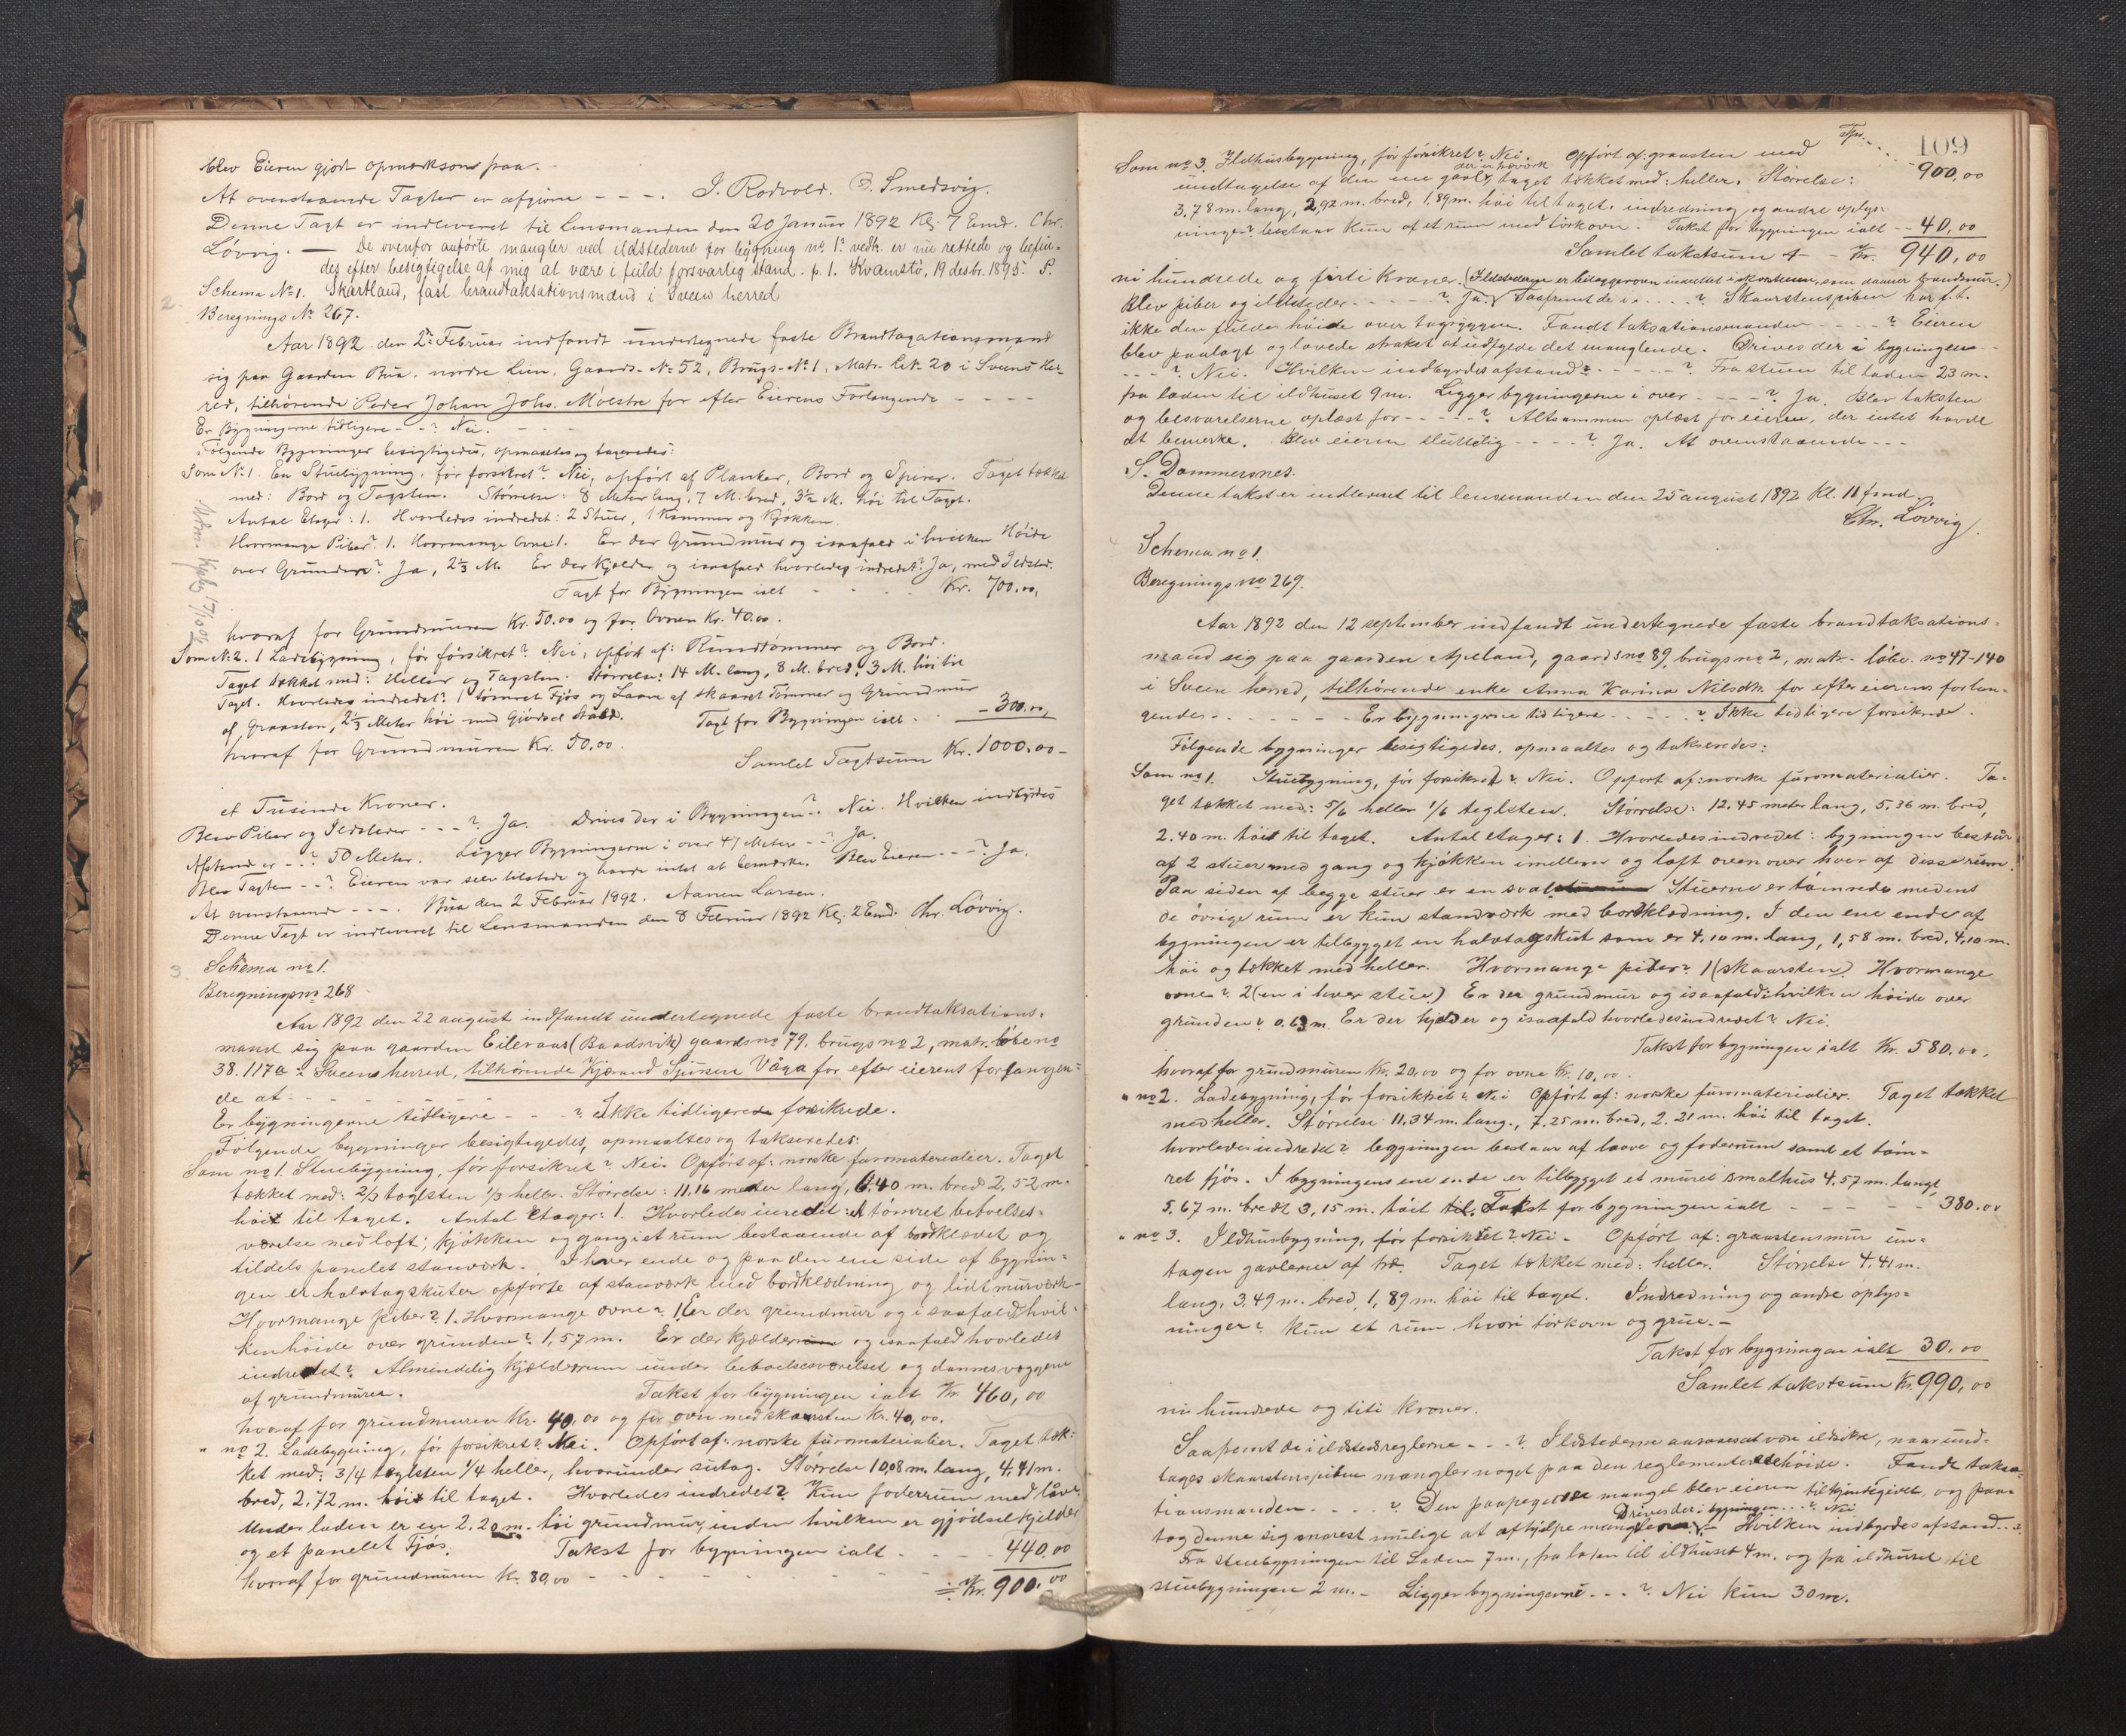 blev Eieren gjort opmerksom paa. -
At ovenstaaende Taxter er afgivne - - -. J. Rodvold. B. Smedsvig.
Denne Taxt er indleveret til Lensmanden den 20 Januar 1892 Kl. 7 Emd. Chr.
Løvvig. — De ovenfor anførte mangler ved ildstederne for bygning no. 1 vedk. er nu rettede og befin-
des efter besigtigelse af mig at være i fuld forsvarlig stand. p. t. Kvamstø, 19 desbr. 1895. S.
Schema No 1. Skartland, fast brandtaksationsmænd i Sveen herred
2.
Beregnings No 267.
Aar 1892 den 2den Februar indfandt undertegnede faste Brandtaxationsmænd
sig paa Gaarden Bua, nordre Lien, Gaards-No 52, Brugs-No 1, Matr. Lit. 20 i Sveens Her-
red, tilhørende Peder Johan Johs. Mølstre for efter Eierens Forlangende - - - -
Er Bygningerne tidligere - - ? Nei. - - -
Følgende Bygninger besigtigedes, opmaaltes og taxeredes:
Som No 1. En Stubygning, før forsikret? Nei, opført af Planker, Bord og Spirer. Taget tækket
med: Bord og Tagsten. Størrelse: 8 Meter lang, 7 M. bred, 3½ M. høi til Taget.
Antal Etager: 1. Hvorledes indredet: 2 Stuer, 1 Kammer og Kjøkken.
Hvormange Piber? 1. Hvormange Ovne: 1. Er der Grundmur og isaafald i hvilken Høide
over Grunden? Ja, 2⅓ M. Er der Kjelder og isaafald hvorledes indredet? Ja, med Ildsted.
Taxt for Bygningen ialt - - - - Kr. 700.00,
hvoraf for Grundmuren Kr. 50.00 og for Ovnen Kr. 40.00.
Som No 2. 1 Ladebygning, før forsikret? Nei, opført af: Rundtømmer og Bord.
Taget tækket med: Heller og Tagsten. Størrelse: 14 M. lang, 8 M. bred, 3 M. høi til
Taget. Hvorledes indredet? 1 tømret Fjøs og Laave af skaaret Tømmer og Grundmur
af Graasten, 2⅓ Meter høi med Gjødsel Stald. Taxt for Bygningen ialt . . - 300.00,
hvoraf for Grundmuren Kr. 50.00.
Samlet Taxtsum Kr. 1000.00 -
et Tusinde Kroner.
Blev Piber og Ildsteder - - - ? Ja. Drives der i Bygningen - ? Nei. Hvilken indbyrdes
Afstand er - - ? 50 Meter. Ligger Bygningerne i over 47 Meters - - ? Ja.
Blev Taxten - - ? Eieren var selv tilstede og havde intet at bemærke. Blev Eieren - - - ? Ja.
At ovenstaaende - - - . Bua den 2 Februar 1892. Aanen Larsen.
Denne Taxt er indleveret til Lensmanden den 8 Februar 1892 Kl. 2 Emd. Chr. Løvvig.
3
Schema no 1.
Beregningsno 268
Aar 1892 den 22 august indfandt undertegnede faste brandtaksations-
mand sig paa gaarden Eileraas (Baadsvik) gaardsno 79, brugsno 2, matr. løbeno
38.117a i Sveens herred, tilhørende Kjærand Sjursen Våga for efter eierens forlangen-
de at - - - - - - -
Er bygningerne tidligere - - - ? Ikke tidligere forsikrede.
Følgende bygninger besigtigedes, opmaaltes og takseredes:
Som no 1. Stuebygning, før forsikret? Nei. Opført af: norske furomaterialier. Taget
tækket med: 2/3 teglsten 1/3 heller. Størrelse: 11,16 meter lang, 6,40 m. bred 2,52 m.
høit til taget. Antal etager: 1. Hvorledes indredet: 1 tømret beboelses-
værelse med loft; kjøkken og gang i et rum bestaaende af bordklædet og
tildels panelet stavværk. I hver ende og paa den ene side af bygnin-
gen er halvtagskuter opførte af stavværk med bordklædning og lidt murværk -
Hvormange piber? 1. Hvormange ovne? 1. Er der grundmur og isaafald hvil-
ken høide over grunden? 1,57 m. Er der kjælder og isaafald hvorledes
indredet? Almindelig kjælderrum under beboelsesværelset og dannes væggene
af grundmuren. Takst for bygningen ialt Kr. 460,00
hvoraf for grundmuren Kr. 40,00 og for ovn med skorsten Kr. 40,00.
" no 2. Ladebygning, før forsikret? Nei. Opført af: norske furomaterialier. Taget tæk-
ket med: 3/4 teglsten 1/4 heller, hvorunder sutag. Størrelse 10,08 m. lang, 4,41 m.
bred, 2,72 m. høit til taget. Hvorledes indredet? Kun foderrum med låve.
Under laden er en 2.20 m. høi grundmur, inden hvilken er gjødselkjelder
og et panelet Fjøs. Takst for bygningen ialt - - - - 440,00
hvoraf for grundmuren Kr. 80,00 - - - - - - - Kr. 900,00
109
Tpr. - - -
Som no 3. Ildhusbygning, før forsikret? Nei. Opført af: graasten med 900,00
undtagelse af den ene gavl, der er stavværk taget tækket med: heller. Størrelse:
3,78 m. lang, 2,92 m. bred, 1,89 m. høi til taget. indredning og andre oplys-
ninger? bestaar kun af et rum med tørkovn. Takst for bygningen ialt - - 40,00
Samlet takstsum - - Kr. 940,00
ni hundrede og firti Kroner. (Ildstedene er bilæggerovn indsat i skorstenen, som danner brandmur.)
Blev piber og ildsteder - - - - - ? Ja. Saafremt de i - - - - ? Skaarstenspiben har f. t.
ikke den fulde høide over tagryggen. Fandt taksationsmanden - - - - ? Eieren
blev paalagt og lovede straks at udfylde det manglende. Drives der i bygningen - -
- - - ? Nei. Hvilken indbyrdes afstand - - - - - ? Fra stuen til laden 23 m.
fra laden til ildhuset 9 m. Ligger bygningerne i over - - - - ? Ja. Blev taksten
og besvarelserne oplæst for - - - - ? Altsammen oplæst for eieren, der intet havde
at bemerke. Blev eieren sluttelig - - - - ? Ja. At ovenstaaende - - -
S. Dommersnes.
Denne takst er indleveret til lensmanden den 25 august 1892 Kl. 11 fmd.
Chr. Løvvig.
Schema no 1.
Beregningsno 269.
Aar 1892 den 12 september indfandt undertegnede faste brandtaksations-
mand sig paa gaarden Apeland, gaardsno 89, brugsno 2, matr.- løbe. no 47-140
i Sveen herred, tilhørende enke Anna Karina Nilsdtr. for efter eierens forlan-
gende - - - - - - Er bygningerne tidligere - - - - - ? Ikke tidligere forsikrede.
Følgende bygninger besigtigedes, opmaaltes og takseredes:
Som no 1. Stuebygning, før forsikret? Nei. Opført af: norske furomaterialier. Ta-
get tækket med: 5/6 heller 1/6 teglsten. Størrelse: 12,45 meter lang, 5,36 m. bred,
2.40 m. høit til taget. Antal etager: 1. Hvorledes indredet: bygningen bestaar
af 2 stuer med gang og kjøkken imellem og loft ovenover hver af disse rum.
Paa siden af begge stuer er en sval Stuerne er tømrede medens
de øvrige rum er kun standværk med bordklædning. I den ene ende af
bygningen er tilbygget en halvtagskut som er 4,10 m. lang, 1,58 m. bred, 4,10 m.
høi og tækket med heller. Hvormange piber? 1 (skaarsten). Hvormange
ovne? 2 (en i hver stue) Er der grundmur og isaafald i hvilken høide over
grunden? 0.63 m. Er der kjelder og isaafald hvorledes indredet? Nei.
Takst for bygningen ialt Kr. 580.00,
hvoraf for grundmuren Kr. 20,00 og for ovne Kr. 10,00.
" no 2. Ladebygning, før forsikret? Nei Opført af: norske furomaterialier. Taget tækket
med heller. Størrelse 11,34 m. lang., 7.25 m. bred, 2.21 m. høi til taget.
hvorledes indredet? bygningen bestaar af laave og foderrum samt et tøm-
ret fjøs. I bygningens ene ende er tilbygget et muret smalhus 4,57 m. langt,
5.67 m. bredt 3,15 m. høit Takst for bygningen ialt - - - - - 380.00
" no 3. Ildhusbygning, før forsikret? Nei - Opført af: graastensmur un-
tagen gavlerne af træ. Taget tækket med: heller. Størrelse 4,41 m.
lang, 3.49 m. bred, 1,89 m. høi til taget. Indredning og andre oplys-
ninger? Kun et rum hvori tørkovn og grue. -
Takst for bygningen ialt 30,00
Samlet takstsum Kr. 990,00
ni hundrede og niti kroner.
Saafremt de i ildstedsreglerne - - - ? Ildstederne ansaaes at være ildsikre, naar und-
tages skaarstenspiben mangler noget paa den reglementerede høide. Fandt taksa-
tionsmanden - - - - ? Den paapegede mangel blev eieren tilkjendegivet, og paa-
tog denne sig snarest muligt at afhjælpe manglen. Drives der i bygningen - - - ? Nei Hvilken indbyrdes afstand - - ?
Fra stuebygningen til Laden 7 m., fra laden til ildhuset 4 m. og fra ildhuset til
stuebygningen 2 m. - Ligger bygningerne - - - ? Nei kun 30 m.